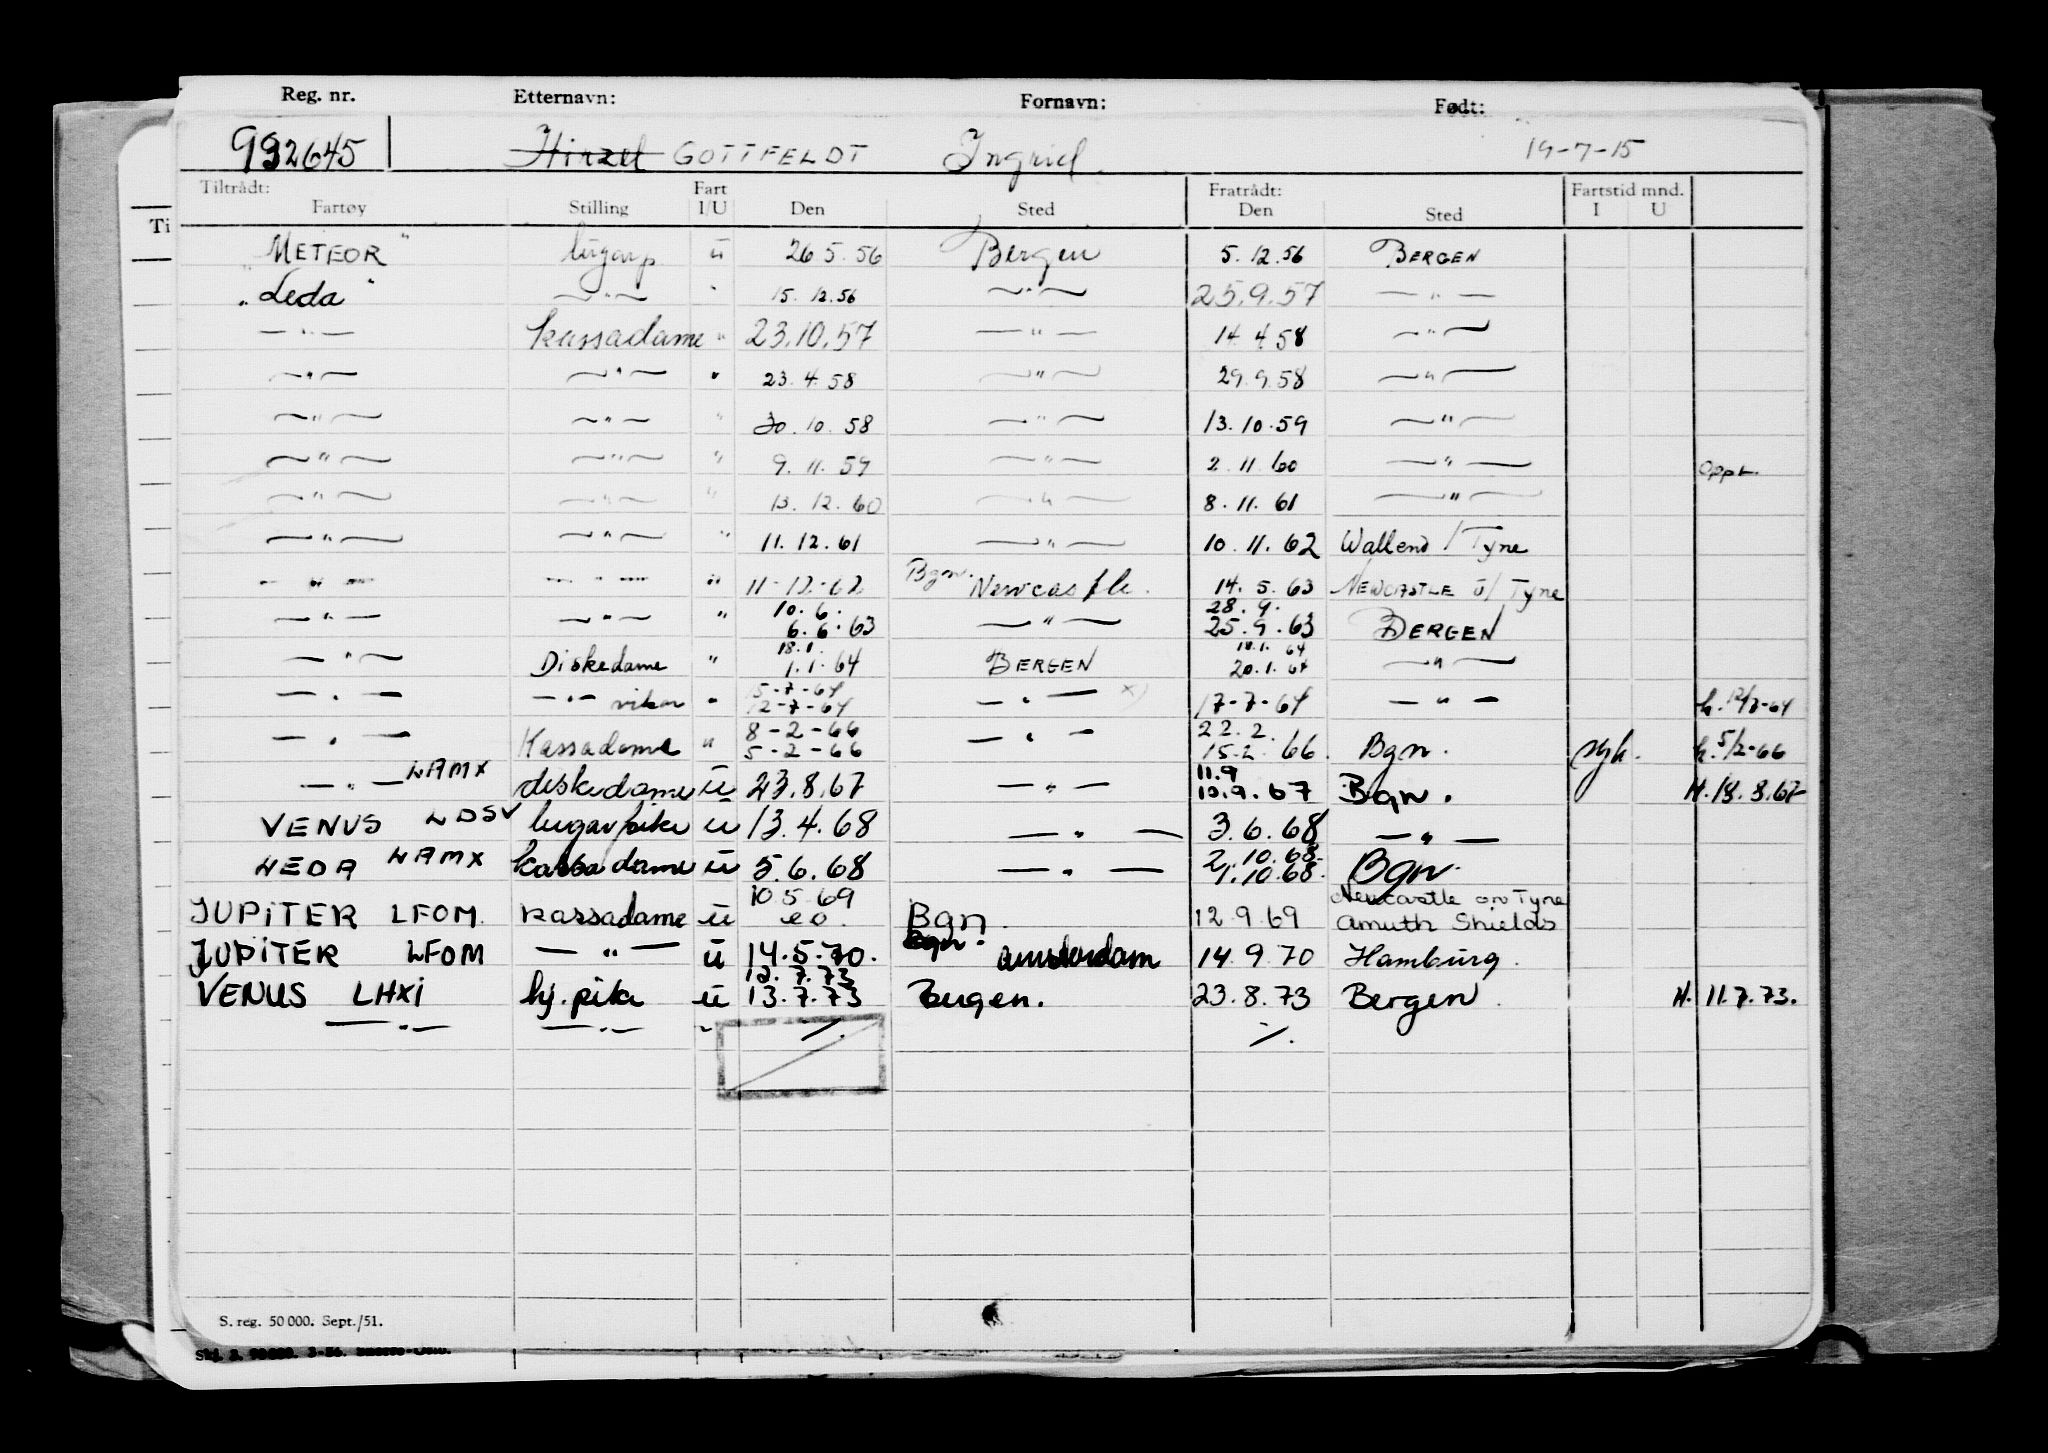 Reg. nr. Etternavn: Fornavn: Født:
992645 Hirzel GOTTFELDT Ingrid 19-7-15
Tiltrådt: Fart Fratrådt: Fartstid mnd.
Fartøy Stilling I/U Den Sted Den Sted I U
Ti
"METEOR" lugarp u 26 5. 56 Bergen 5. 12. 56 BERGEN
"Leda" —"— " 15. 12. 56 —"— 25. 9. 57 —"—
—"— Kassadame " 23. 10. 57 —"— 14 4 58 —"—
—"— —"— " 23. 4. 58 —"— 29. 9. 58 —"—
—"— —"— " 30. 10. 58 —"— 13. 10. 59 —"—
—"— —"— " 9. 11. 59 —"— 2. 11. 60 —"— oppt.
—"— —"— " 13. 12. 60 —"— 8. 11. 61 —"—
—"— —"— " 11. 12. 61 —"— 10. 11. 62 Wallend / Tyne
—"— —"— " 11-12-62 Bgn. Newcastle. 14. 5. 63 NEWCASTLE u/ Tyne
10. 6. 28. 9.
—"— —"— " 6. 6. 63 —"— 25. 9. 63 BERGEN
18. 1. 18. 1. 64
—"— Diskedame " 1. 1. 64 BERGEN 20. 1. 64 —"—
15-7-64
—"— —"— vikar " 12-7-64 —"— x) 17-7-64 —"— h. 12/7-64
8-2-66 22. 2.
—"— Kassadame " 5-2-66 —"— 15. 2. 66. Bgn. syk. h. 5/2-66
LAMX 11. 9
—"— diskedame u 23. 8. 67 —"— 10. 9. 67 Bgn. H. 18. 8. 67
VENUS LDSV lugarpike u 13. 4. 68 —"— 3. 6. 68 —"—
2. 10. 68.
LEDA LAMX kassadame u 5. 6. 68 —"— 1. 10. 68. Bgn.
10. 5 69 Newcastle on Tyne
JUPITER LFOM. kassadame u Bgn. 12. 9. 69 Shields
JUPITER LFOM —"— u 14. 5. 70. Bgn. Amsterdam 14. 9. 70 Hamburg.
12. 7. 73
VENUS LHXI hj. pike u 13. 7. 73 Bergen. 23. 8. 73 Bergen. H. 11. 7. 73.
—"— —"— " ./. ./.
S. reg. 50 000. Sept./51.